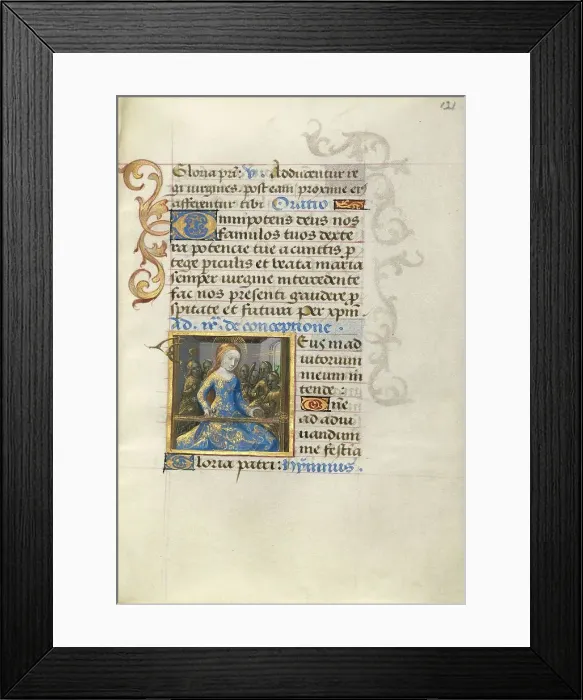 121
Gloria pri: V. Adducentur re
gi virgines post eam proxime eius
afferentur tibi Oratio
Omnipotens deus nos
famulos tuos dexte
ra potencie tue a cunctis p
tege periculis et beata maria
semper virgine intercedente
fac nos presenti gaudere p
speritate et futura Per xpm
Ad. vi. de conceptione.
Eus in ad
iutorium
meum in
tende:
Dne
ad adiu
vandum
me festia
Gloria patri: hymnus.